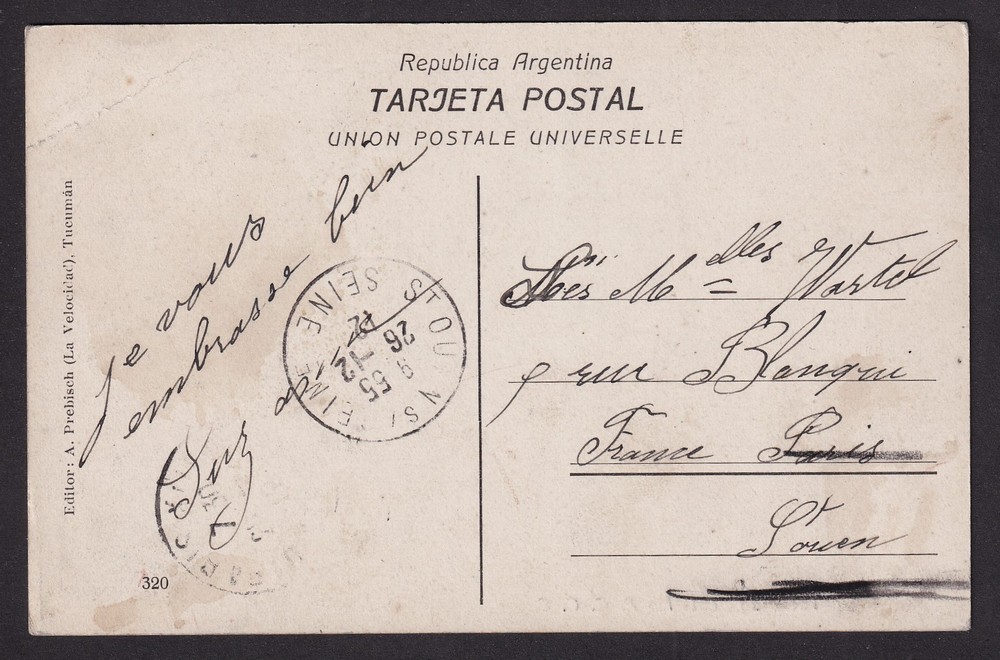 Republica Argentina
TARJETA POSTAL
UNION POSTALE UNIVERSELLE
Editor: A. Prebisch (La Velocidad), Tucumán
Je vous
embrasse bien
ST OUEN S/ SEINE
SEINE
9 55
26 12
12
M elles Wartel
9 rue Blanqui
France Paris
St Ouen
320